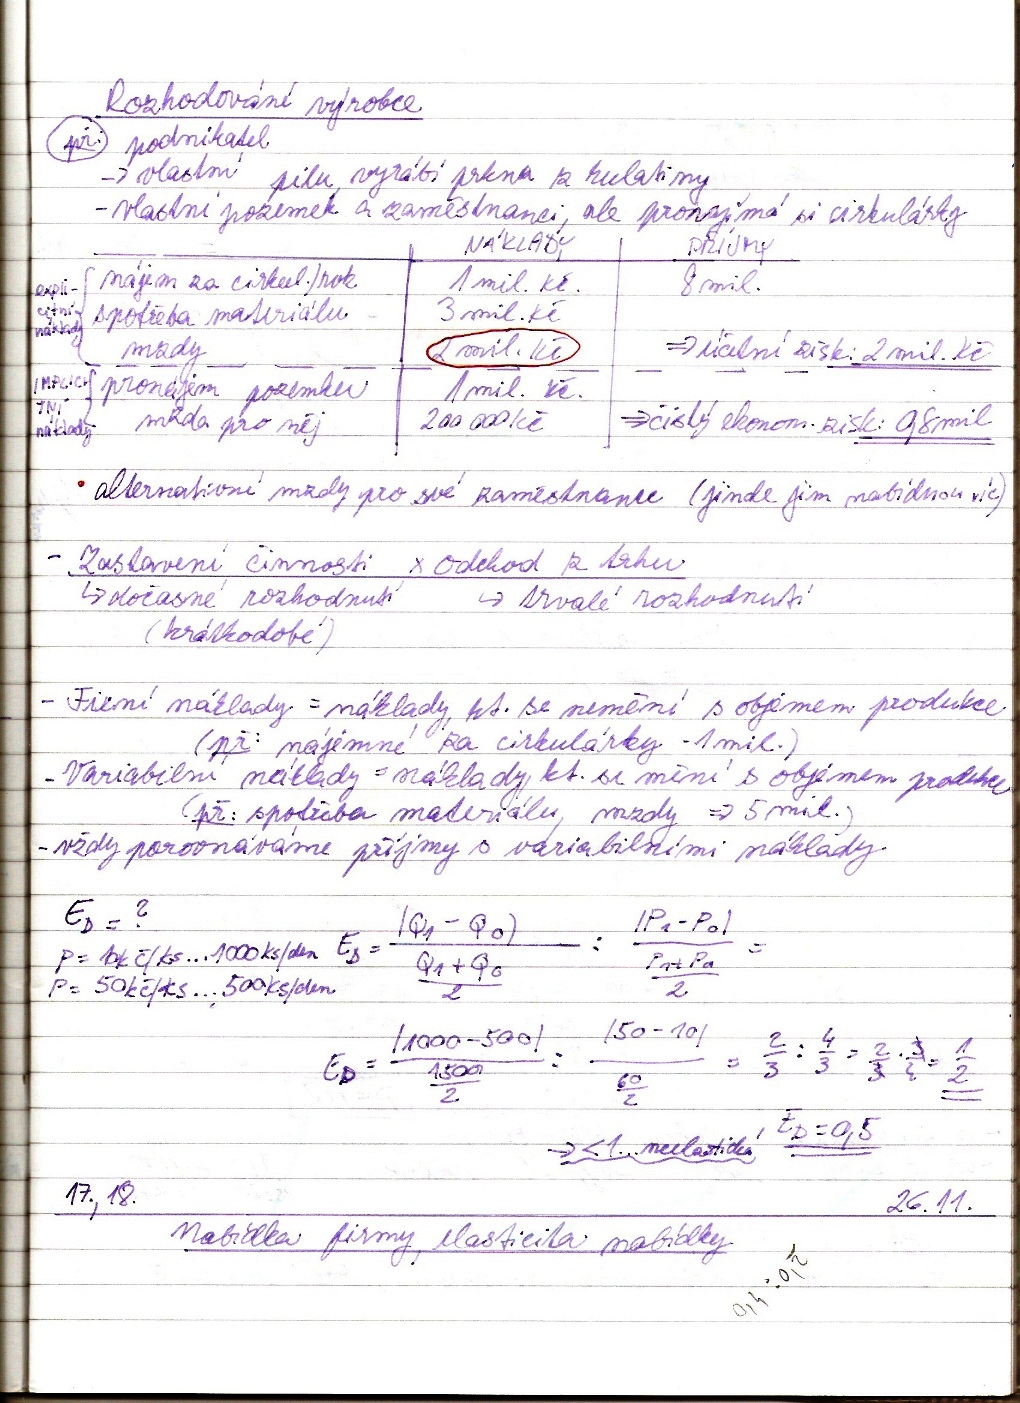 Rozhodování výrobce
př: podnikatel
-> vlastní pilu, vyrábí prkna z kulatiny
- vlastní pozemek a zaměstnanci, ale pronajímá si cirkulárky
NÁKLADY PŘÍJMY
expli- nájem za cirkul./rok 1 mil. Kč. 8 mil.
citní spotřeba materiálu 3 mil. Kč
náklady mzdy 2 mil. Kč => účetní zisk: 2 mil. Kč
IMPLICI pronájem pozemku 1 mil. Kč.
TNÍ náklady mzda pro něj 200 000 Kč => čistý ekonom. zisk: 0,8 mil
• alternativní mzdy pro své zaměstnance (jinde jim nabídnou víc)
- Zastavení činnosti x Odchod z trhu
↳ dočasné rozhodnutí ↳ trvalé rozhodnutí
(krátkodobé)
- Fixní náklady = náklady, kt. se nemění s objemem produkce
(př: nájemné za cirkulárky - 1 mil.)
- Variabilní náklady = náklady, kt. se mění s objemem produkce
(př: spotřeba materiálu, mzdy => 5 mil.)
- vždy porovnáváme příjmy s variabilními náklady.
E_D = ?
P = 10kč/ks...1000ks/den E_D = |Q₁ - Q₀) / ((Q₁ + Q₀)/2) : |P₁ - P₀| / ((P₁ + P₀)/2) =
P = 50kč/ks...500ks/den
E_D = |1000 - 500| / (1500/2) : |50 - 10| / (60/2) = 2/3 : 4/3 = 2/3 · 3/4 = 1/2
-> < 1... neelastická, E_D = 0,5
17., 18. 26.11.
Nabídka firmy, elasticita nabídky